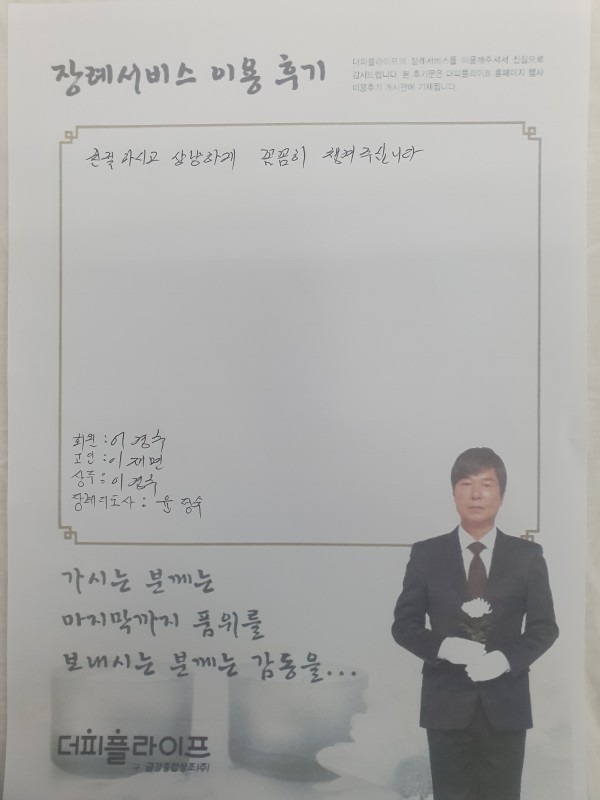 장례서비스 이용 후기
더피플라이프의 장례서비스를 이용해주셔서 진심으로
감사드립니다. 본 후기문은 더피플라이프 홈페이지 행사
이용후기 게시판에 기재됩니다.
친절하시고 상냥하게 꼼꼼히 챙겨주십니다
회원 : 이경숙
고인 : 이재면
상주 : 이경숙
장례지도사 : 윤정숙
가시는 분께는
마지막까지 품위를
보내시는 분께는 감동을...
더피플라이프
구 금강종합상조(주)